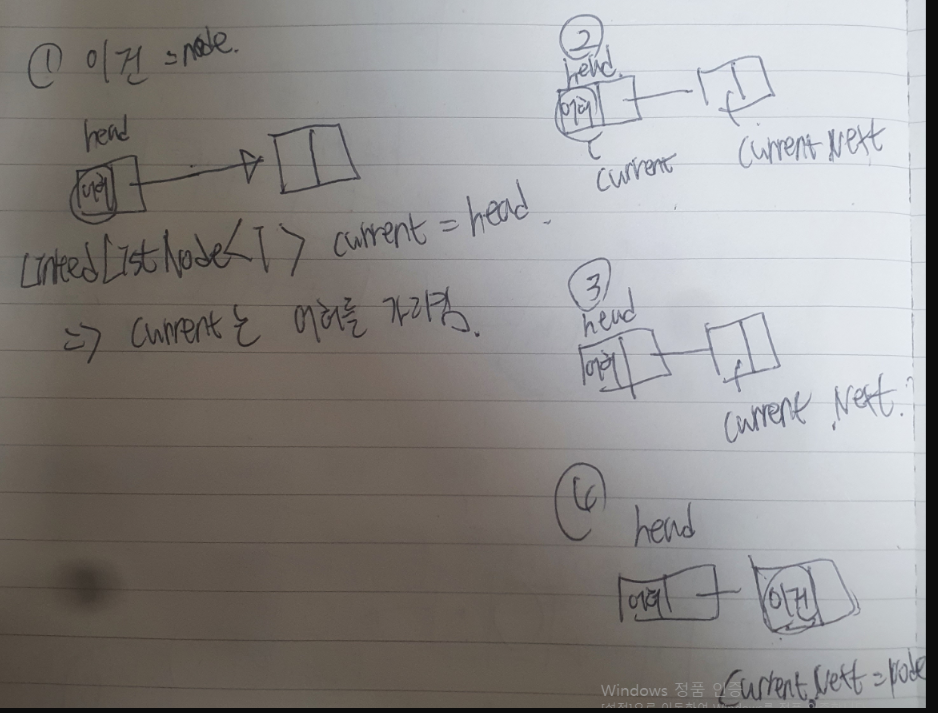 ① 이건 = node.
head
어허
LinkedListNode<T> current = head.
=> current는 어허를 가리킴.
②
head.
어허
current
current.Next
③
head
어허
current.Next.
④
head
어허
이건
Current.Next = node
Windows 정품 인증